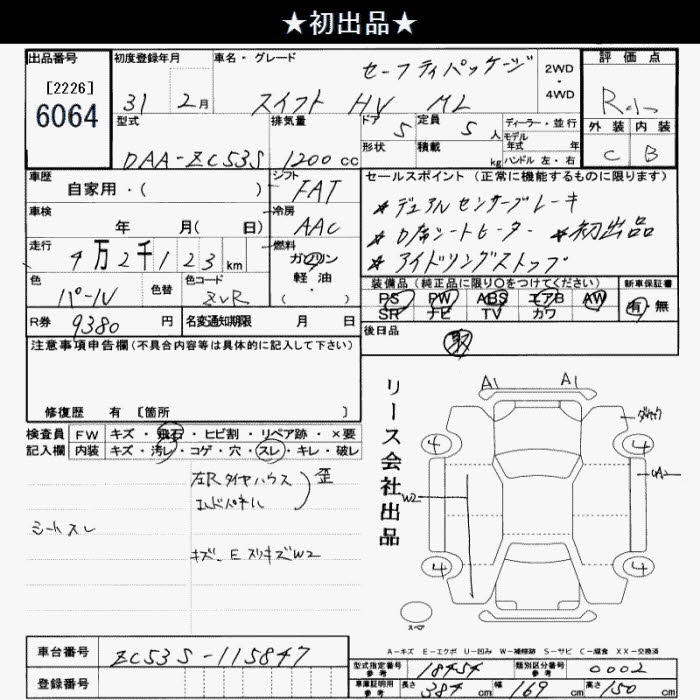 ★初出品★
出品番号
[2226]
6064
初度登録年月
31 2月
車名・グレード
セーフティパッケージ
スイフト HV ML
2WD
・
4WD
評価点
外装 内装
C B
型式
DAA-ZC53S
排気量
1200 cc
ドア 5
定員 5 人
形状
積載 kg
ディーラー・並行
モデル年式 年
ハンドル 左・右
車歴
自家用・( )
シフト
FAT
車検
年 月( 日)
冷房
AAC
走行
4万2千123km
燃料
ガソリン
軽油
・
色
パール
色替
色コード
ZVR
R券
9380円
名変通知期限 月 日
セールスポイント(正常に機能するものに限ります)
★デュアルセンサーブレーキ
★D席シートヒーター ★初出品
★アイドリングストップ
装備品(純正品に限り〇をつけてください)
PS PW ABS エアB AW
SR ナビ TV カワ
新車保証書
有・無
後日品
取
注意事項申告欄(不具合内容等は具体的に記入して下さい)
修復歴 有 [箇所 ]
検査員
記入欄
FW キズ・飛石・ヒビ割・リペア跡・×要
内装 キズ・汚レ・コゲ・穴・スレ・キレ・破レ
左Rタイヤハウス
エンドパネル
歪
シートスレ
キズ、E スリキズW2
リース会社出品
A1 A1
4 4
W2
4 4
スペア
A-キズ E-エクボ U-凹み W-補修跡 S-サビ C-腐食 XX-交換済
車台番号
ZC53S-115847
登録番号
型式指定番号
参考
18454
類別区分番号
参考
0002
車庫証明用
参考
長さ 384 cm
幅 169 cm
高さ 150 cm